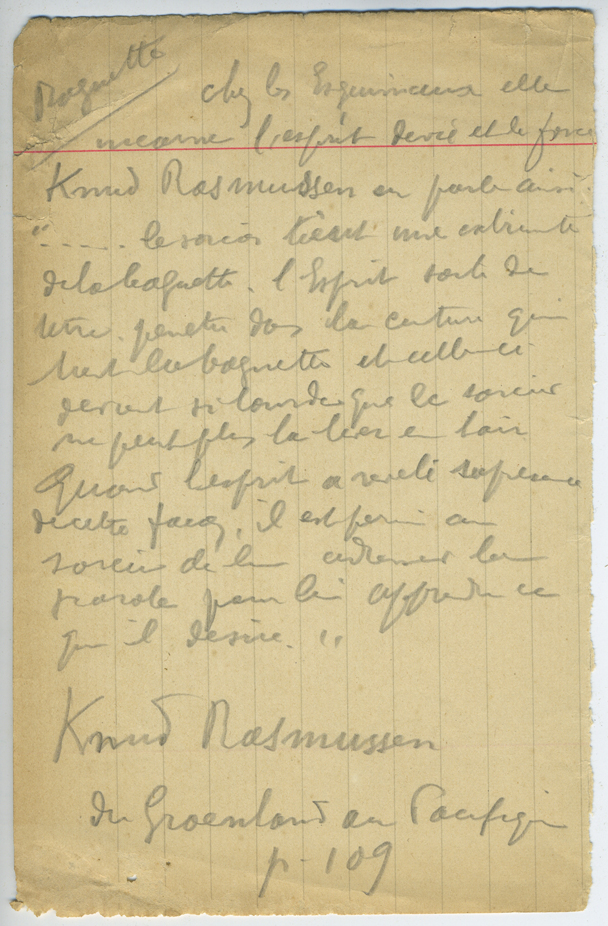 Baguette
chez les Esquimaux elle
incarne l'esprit de vie et de force
Knud Rasmussen en parle ainsi.
"..... le sorcier tient une extrémité
de la baguette. l'Esprit sorti de
terre penètre dans la ceinture qui
tient la baguette et celle ci
devient si lourde que le sorcier
ne peut plus la lever en l'air
Quand l'esprit a revelé sa presence
de cette façon, il est permis au
sorcier de lui adresser la
parole pour lui apprendre ce
qu'il desire. "
Knud Rasmussen
du Groenland au Pacifique
p. 109